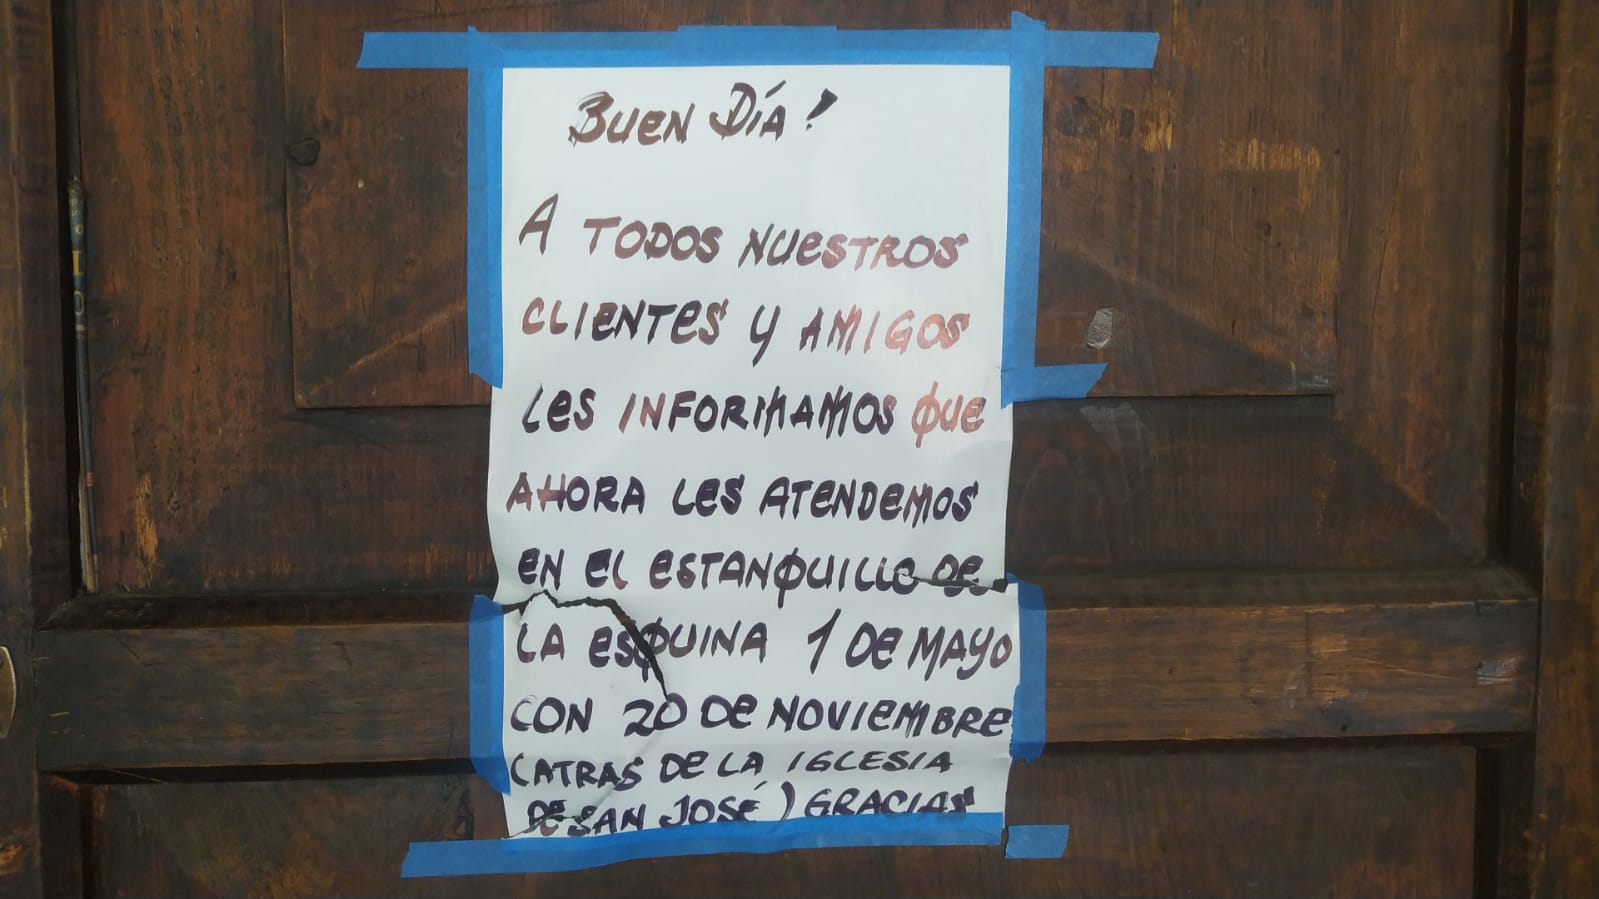 BUEN DÍA!
A TODOS NUESTROS
CLIENTES Y AMIGOS
LES INFORMAMOS QUE
AHORA LES ATENDEMOS
EN EL ESTANQUILLO DE
LA ESQUINA 1 DE MAYO
CON 20 DE NOVIEMBRE
(ATRAS DE LA IGLESIA
DE SAN JOSÉ) GRACIAS